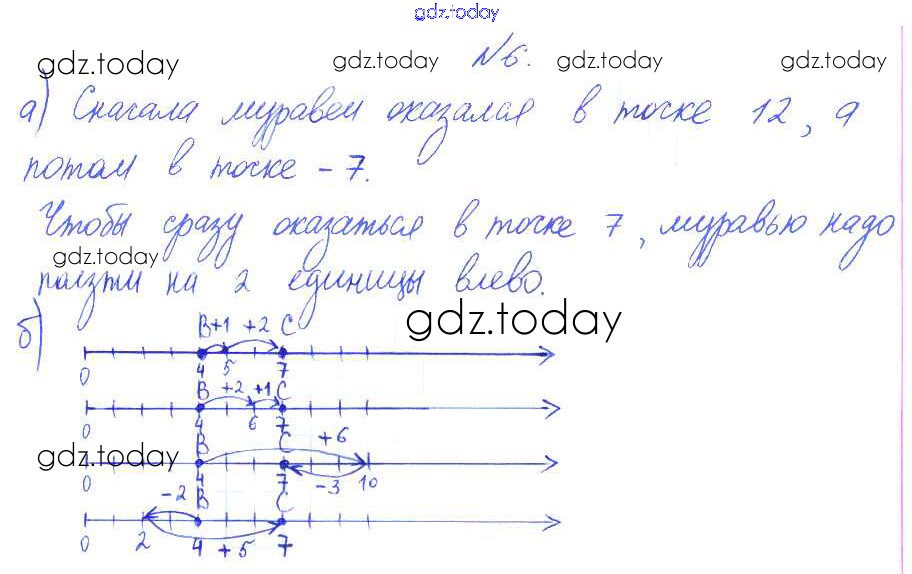 gdz.today
gdz.today gdz.today № 6. gdz.today gdz.today
а) Сначала муравей оказался в точке 12, а
потом в точке - 7.
Чтобы сразу оказаться в точке 7, муравью надо
gdz.today
ползти на 2 единицы влево.
б) gdz.today
B +1 +2 C
0 4 5 7
B +2 +1 C
0 4 6 7
B C +6
gdz.today
0 4 7 -3 10
-2 B C
0 2 4 +5 7